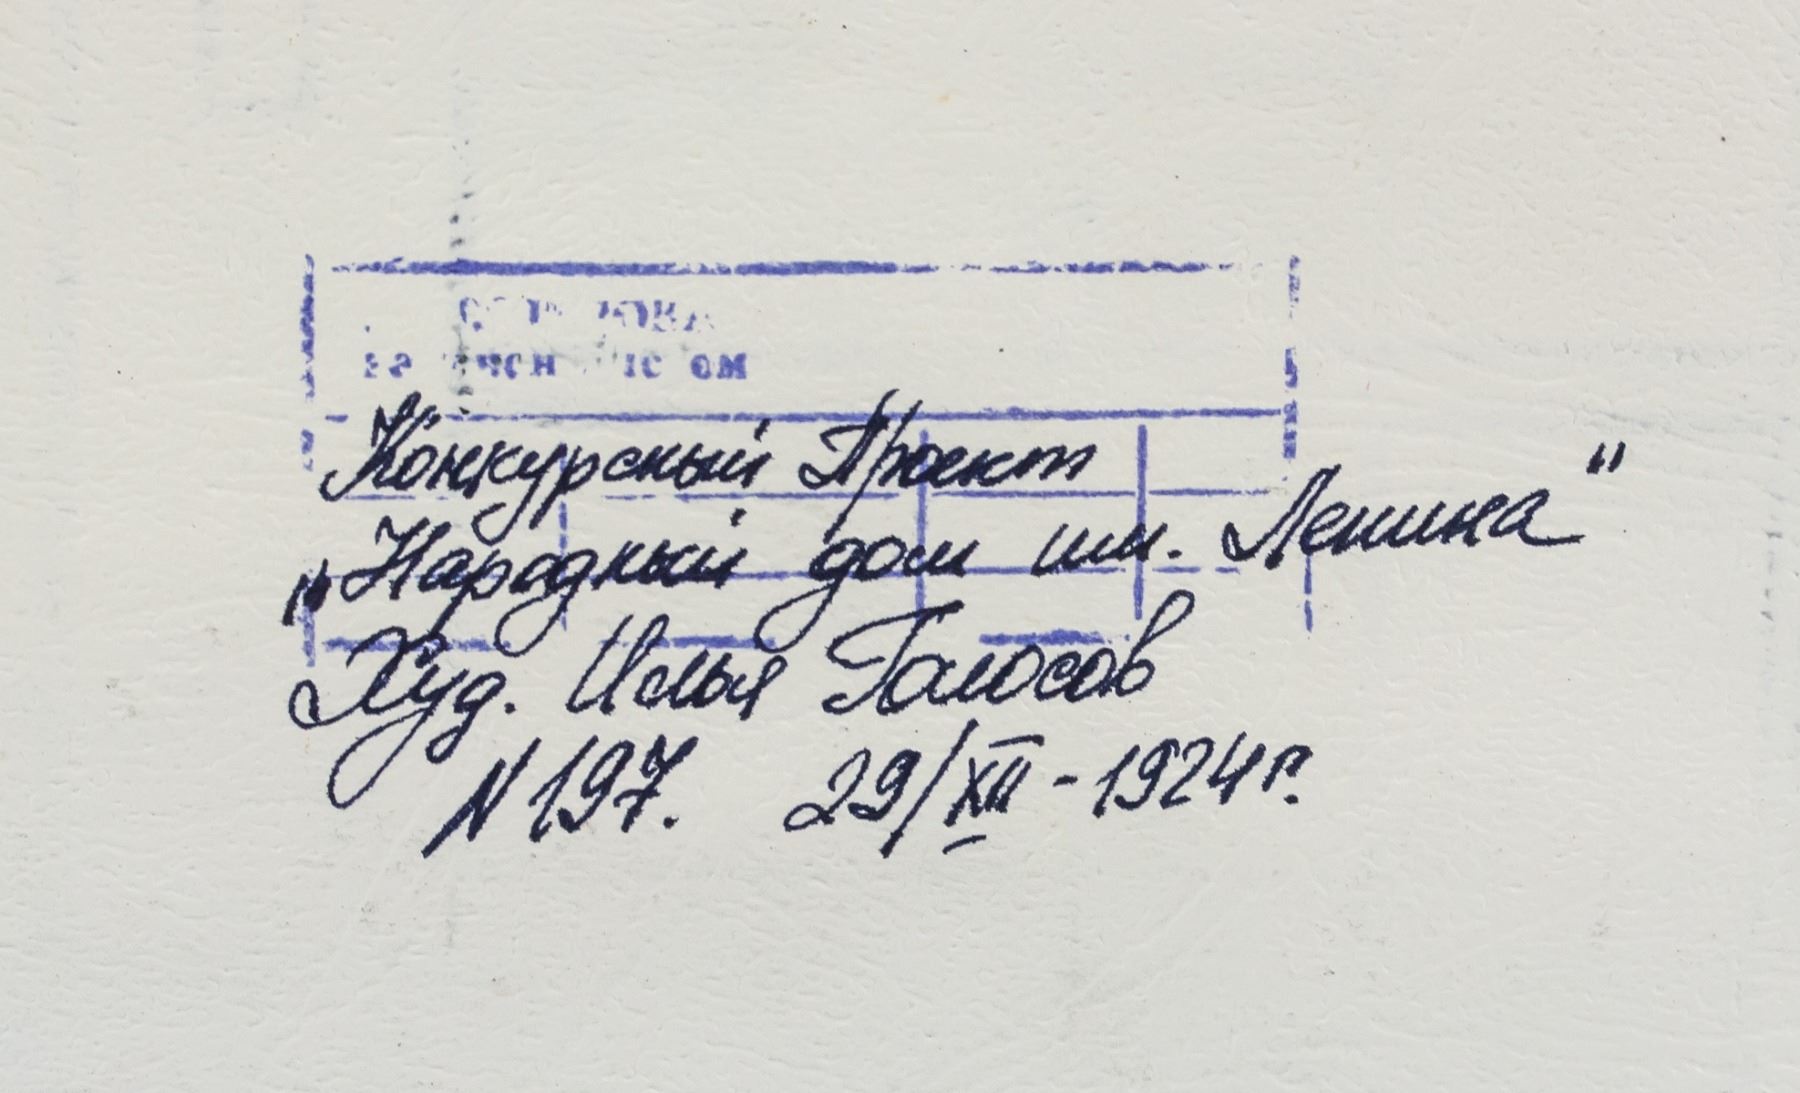 Конкурсный Проект
„Народный дом им. Ленина"
Худ. Илья Голосов
N 197. 29/XII - 1924 г.